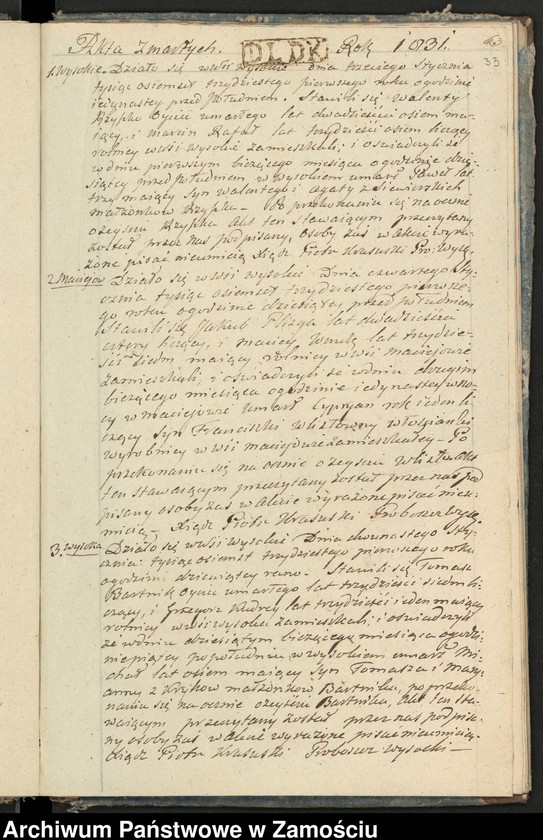 Akta Zmarłych. DLDK Rok 1831.
33
1. Wysokie. Działo się w wsi Wysokie dnia trzeciego Stycznia
tysiąc osiemset trzydziestego pierwszego roku o godzinie
iedynastey przed południem. Stawili się Walenty
Krzyska Oyciec umarłego lat dwadzieścia osiem ma-
iący, i Marcin Rafał lat trzydzieści osiem liczący
rolnicy w wsi Wysokie zamieszkali; i oświadczyli że
w dniu pierwszym bieżącego miesiąca o godzinie dzie-
siątey przed południem, w Wysokiem umarł Paweł lat
trzy maiący Syn Walentego i Agaty z Siewierskich
małżonków Krzyska – Po przekonaniu się na ocznie
o zeyściu Krzyska Akt ten Stawaiącym przeczytany
został przez nas podpisany, osoby zaś w Akcie wyra-
żone pisać nieumieią Xiądz Piotr Krasuski Pro: Wyso:
2. Maciejów Działo się w wsi Wysokie Dnia czwartego Sty-
cznia tysiąc osiemset trzydziestego pierwsze-
go roku o godzinie dziesiątey przed południem
Stawili się Jakub Plizga lat dwadzieścia
cztery liczący, i Maciey lat trzydzie-
ści siedm maiący rolnicy w wsi Maciejowie
zamieszkali, i oświadczyli że w dniu drugim
bieżącego miesiąca o godzinie iedynastey w no-
cy w Maciejowie umarł Cypryan rok ieden li-
czący Syn Franciszki włościanki
wyrobnicy w wsi Maciejowie zamieszkałey – Po
przekonaniu się na ocznie o zeyściu Akt
ten stawaiącym przeczytany został przez nas pod
pisany osoby zaś w Akcie wyrażone pisać nieu-
mieią – Xiądz Piotr Krasuski Proboszcz Wyso:
3. Wysokie Działo się w wsi Wysokie Dnia dwunastego Sty-
cznia tysiąc osiemset trzydziestego pierwszego roku
o godzinie dziewiątey rano. Stawili się Tomasz
Bartnik Oyciec umarłego lat trzydzieści siedm li-
czący, i Grzegorz Kudrey lat trzydzieści ieden maiący
rolnicy w wsi Wysokie zamieszkali; i oświadczyli
że w dniu dziesiątym bieżącego miesiąca o godzi-
nie piątey po południu w Wysokiem umarł Mi-
chał lat osiem maiący Syn Tomasza i Mary-
anny z Kryków małżonków Bartnika, po przeko-
naniu się na ocznie o zeyściu Bartnika, Akt ten Sta-
waiącym przeczytany został przez nas podpisa-
ny osoby zaś w Akcie wyrażone pisać nieumieią
Xiądz Piotr Krasuski Proboszcz Wysocki –
Archiwum Państwowe w Zamościu